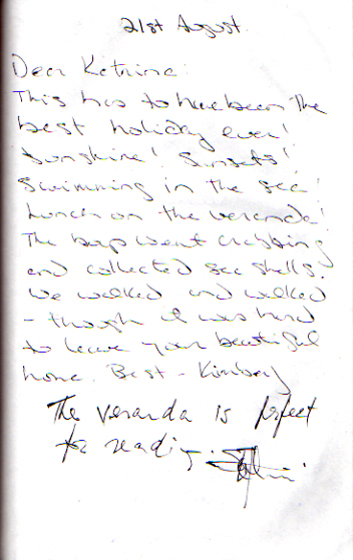 21st August.
Dear Katrina:
This has to have been the
best holiday ever!
Sunshine! Sunsets!
Swimming in the sea!
Lunch on the veranda!
The boys went crabbing
and collected sea shells!
We walked and walked
- though it was hard
to leave your beautiful
home. Best - Kimberly
The veranda is perfect
for reading.